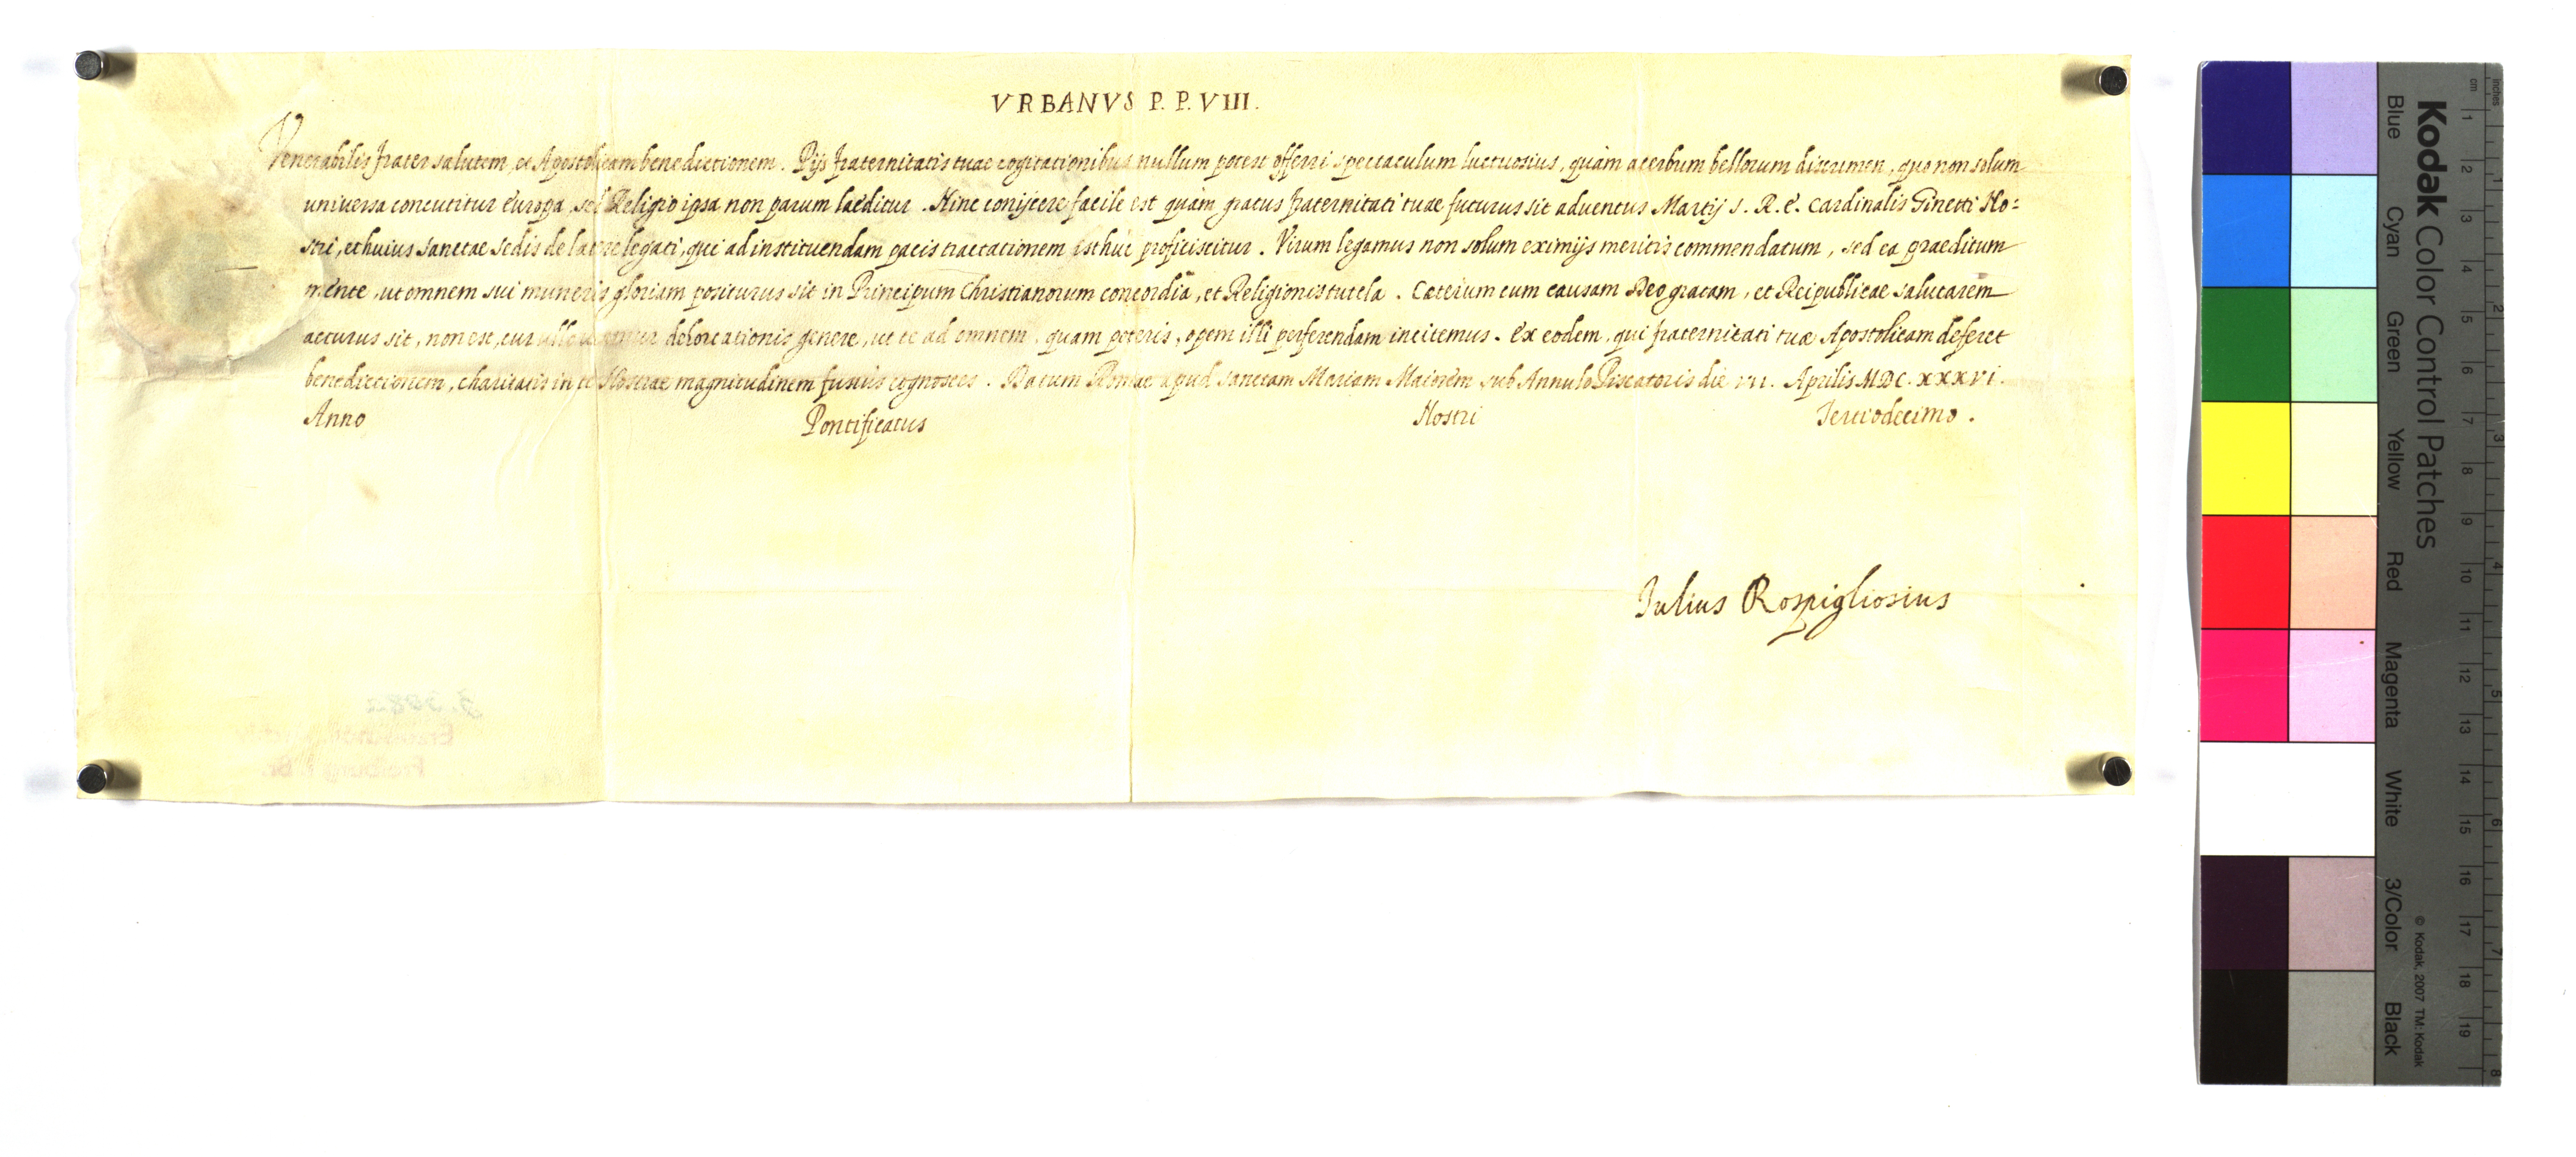 VRBANVS P. P. VIII.
Venerabilis frater salutem, et Apostolicam benedictionem. Pijs fraternitatis tuae cogitationibus nullum potest offerri spectaculum luctuosius, quàm acerbum bellorum discrimen, quo non solum
uniuersa concutitur Europa, sed Religio ipsa non parum laeditur. Hinc conijcere facile est quàm gratus fraternitati tuae futurus sit aduentus Martij S. R. E. Cardinalis Ginetti No:
stri, et huius sanctae sedis de latere legati, qui ad instituendam pacis tractationem isthuc proficiscitur. Virum legamus non solum eximijs meritis commendatum, sed ea praeditum
mente, ut omnem sui muneris gloriam positurus sit in Principum Christianorum concordia, et Religionis tutela. Caeterum cum causam Deo gratam, et Reipublicae salutarem
acturus sit, non est, cur ullo utamur dehortationis genere, ut te ad omnem, quam poteris, opem illi perferendam incitemus. Ex eodem, qui fraternitati tuae Apostolicam deferet
benedictionem, charitatis in te Nostrae magnitudinem fusius cognosces. Datum Romae apud sanctam Mariam Maiorem sub Annulo Piscatoris die VII. Aprilis MDC.XXXVI.
Anno Pontificatus Nostri Tertiodecimo.
Iulius Rospigliosius
Kodak Color Control Patches
© Kodak, 2007 TM: Kodak
Blue Cyan Green Yellow Red Magenta White 3/Color Black
cm 1 2 3 4 5 6 7 8 9 10 11 12 13 14 15 16 17 18 19
inches 1 2 3 4 5 6 7 8